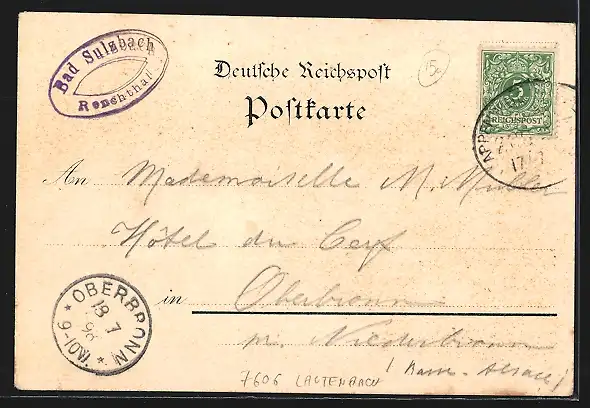 Bad Sulzbach
Renchthal
Deutsche Reichspost
Postkarte
15.
5
REICHSPOST
APPENWEIER
17/7
An Mademoiselle M. Müller
Hôtel du Cerf
in Oberbronn
pr. Niederbronn
(Basse-Alsace)
OBERBRONN
18 7
98
9-10V.
7606 LAUTENBACH